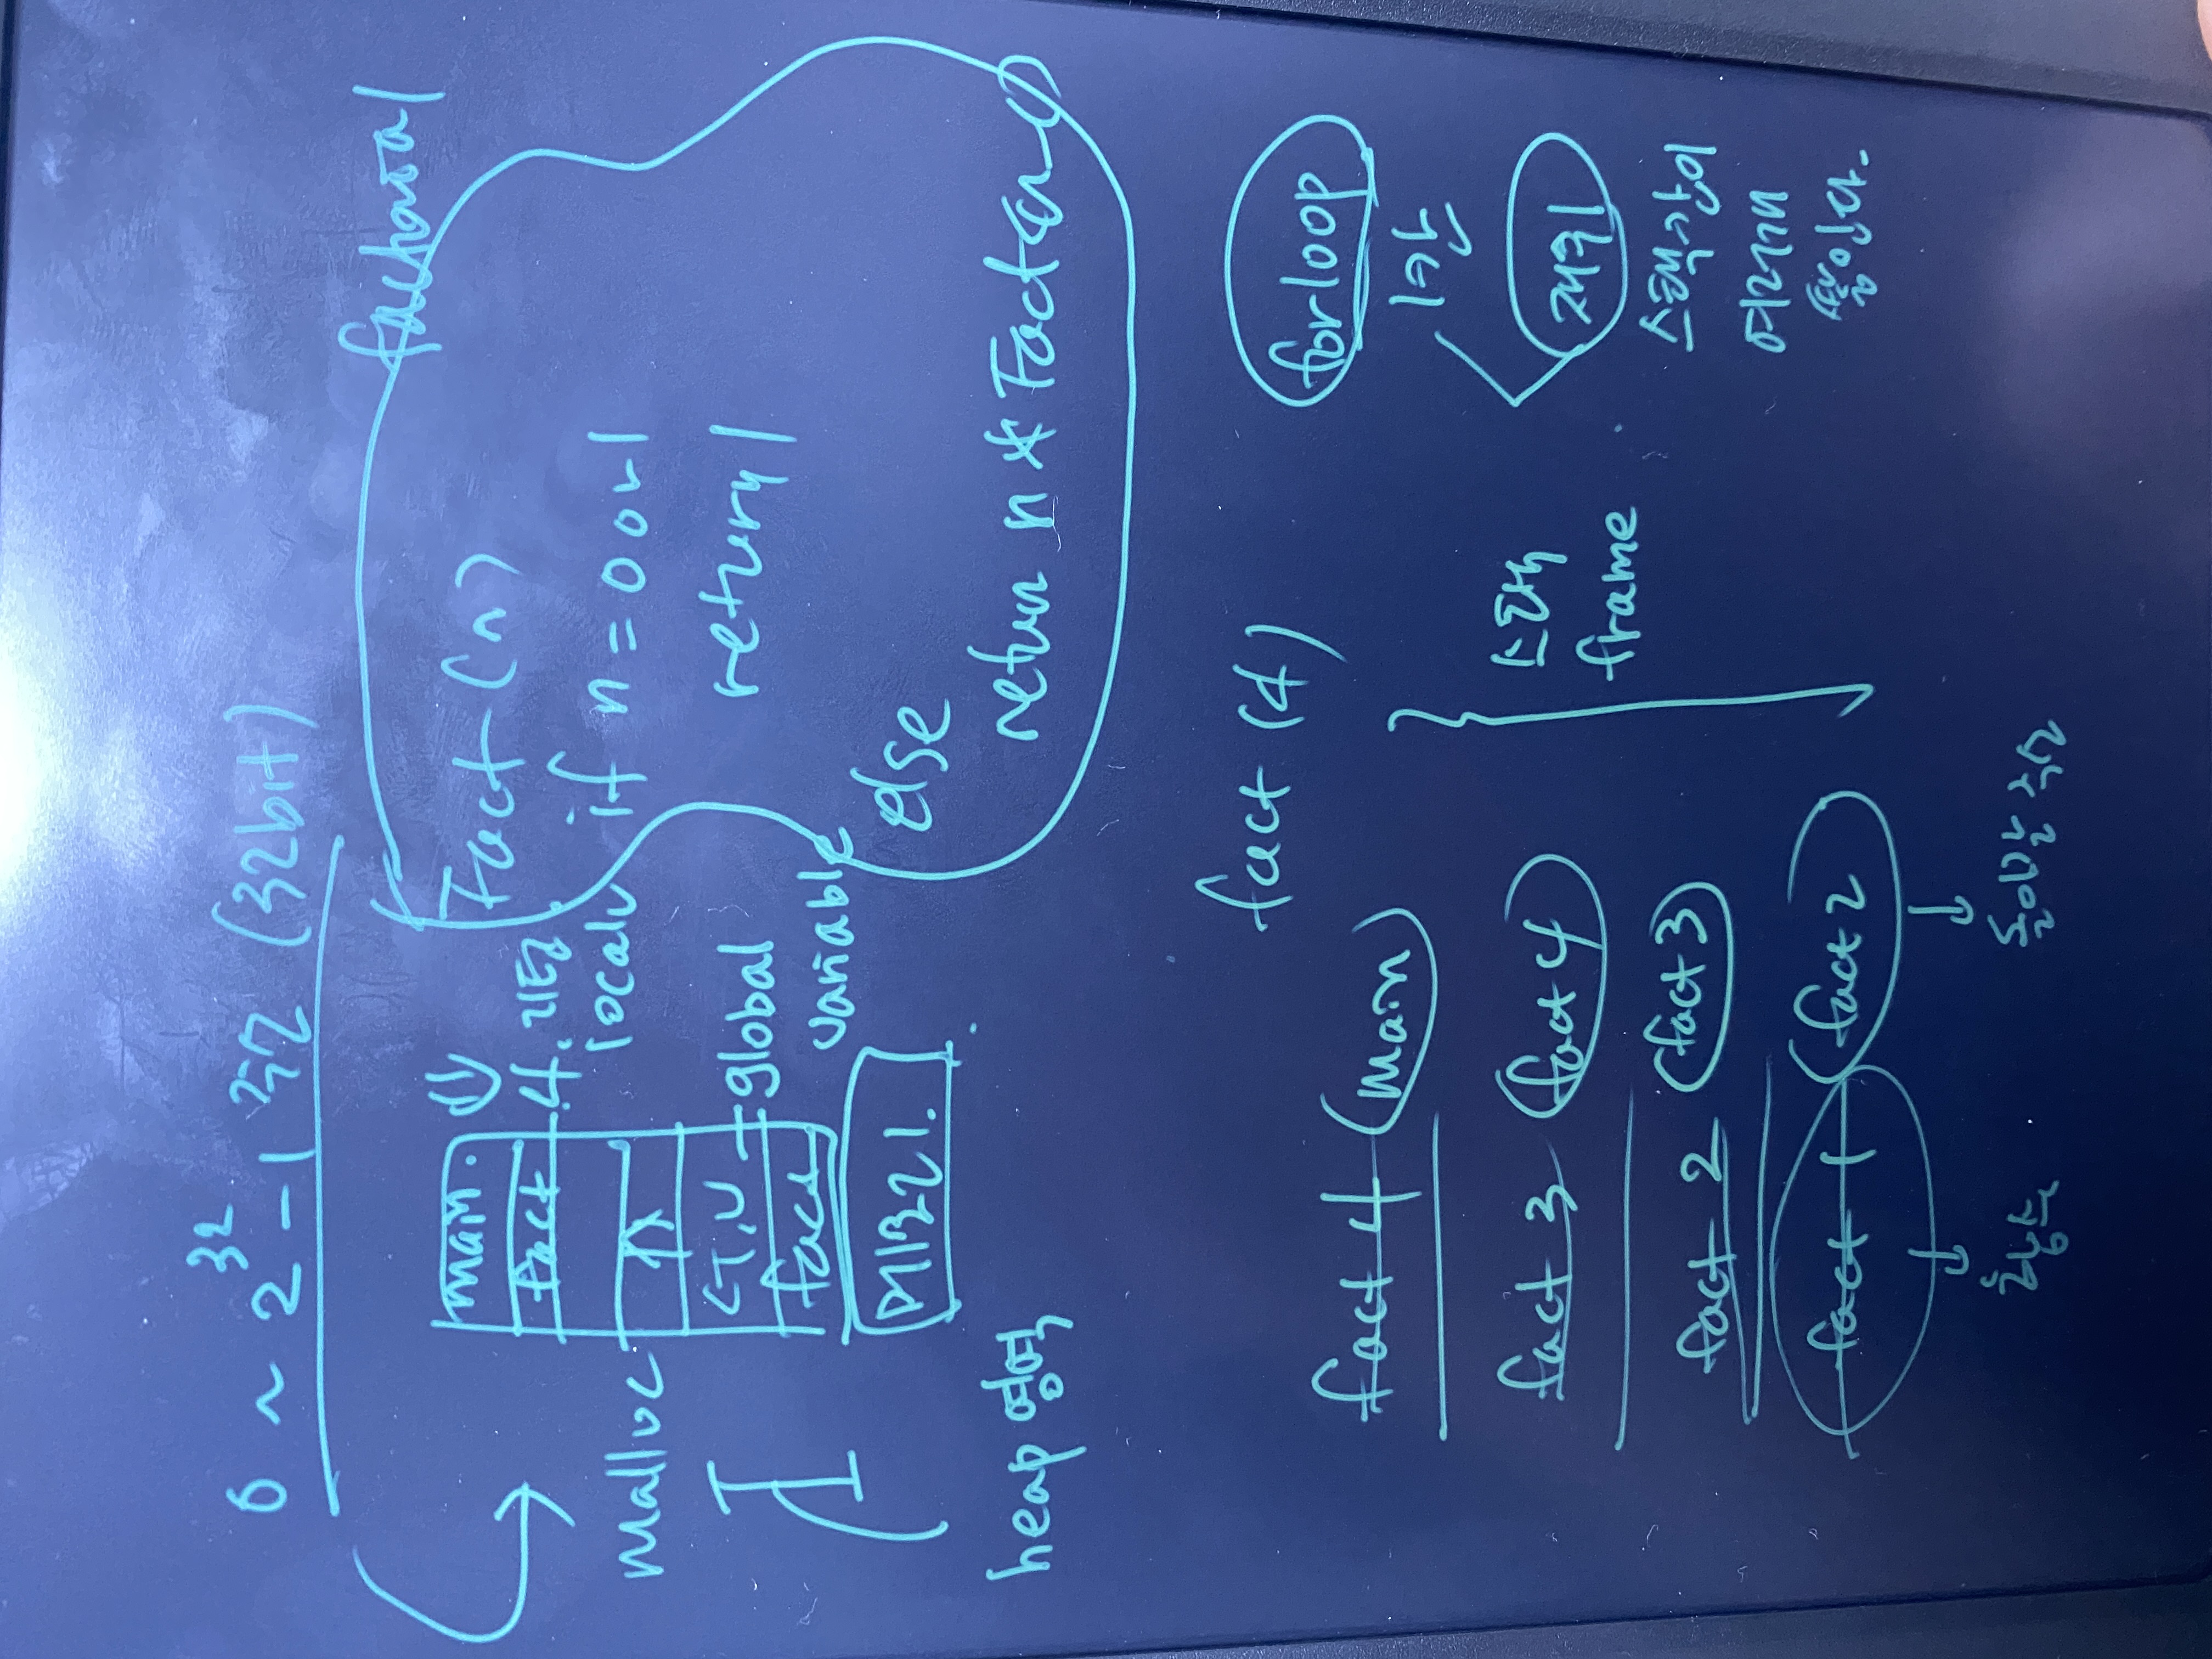 0 ~ 2^32 - 1 주소 (32bit)
factorial
main.
fact
4. 리턴
local v
malloc
global
variable
fact
메모리.
heap 영역
Fact (n)
if n = 0 or 1
return 1
else
return n * Fact(n-1)
fact (4)
fact 4 (main)
fact 3 (fact 4)
fact 2 (fact 3)
fact 1 (fact 2)
함수
돌아갈 주소
스택
frame
for loop
1칸
재귀
스택칸이
여러개
쌓인다.